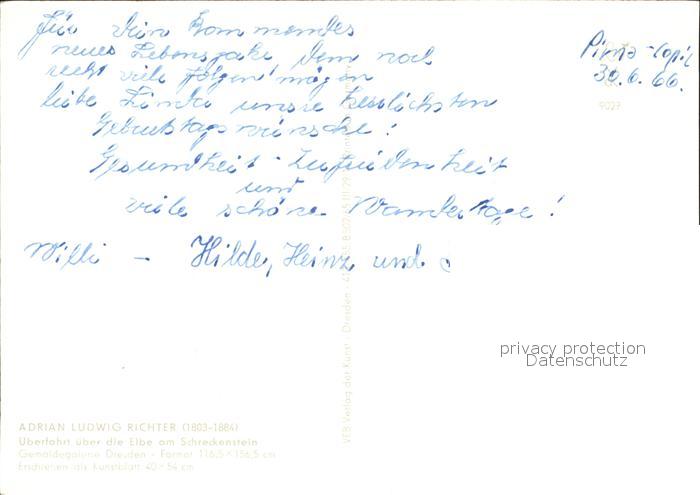 für Dein kommendes
neues Lebensjahr dem noch
recht viele folgen mögen
liebe Linda unsre herzlichsten
Geburtstagswünsche!
Gesundheit - Zufriedenheit
und
viele schöne Wandertage!
Willi - Hilde, Heinz und
Pirna-Cop
30.6.66.
9027
VEB Verlag der Kunst · Dresden
privacy protection
Datenschutz
ADRIAN LUDWIG RICHTER (1803–1884)
Überfahrt über die Elbe am Schreckenstein
Gemäldegalerie Dresden - Format 116,5 × 156,5 cm
Erschienen als Kunstblatt 40 × 54 cm